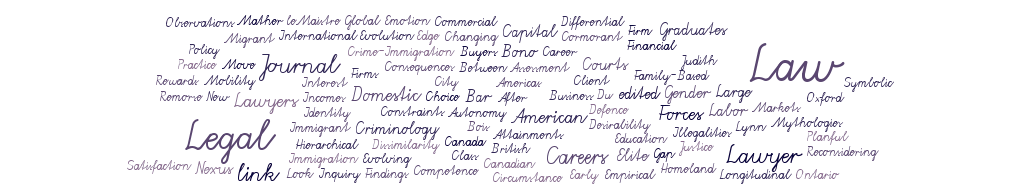 Observations Mather leMaistre Global Emotion Commercial Differential
Migrant International Evolution Edge Changing Capital Cormorant Firm Graduates
Policy Crime-Immigration Buyers Bono Career Financial
Practice Move Journal Consequences Between Assessment Courts Judith Law
Rewards Mobility Interest Firms City American Client Family-Based Symbolic
Remorse New Lawyers Incomes Domestic Choice Bar After Business Du edited Gender Large Oxford
Identity Constraints Autonomy American Defence Forces Labor Markets
Legal Immigrant Criminology Bow Attainments Desirability Illegalities Lynn Mythologies
Hierarchical Dissimilarity Canada British Education Justice Planful
Immigration Evolving Class Canadian Careers Elite Gap Lawyer Reconsidering
Satisfaction Nexus link Look Inquiry Findings Competence Circumstance Early Empirical Homeland Longitudinal Ontario